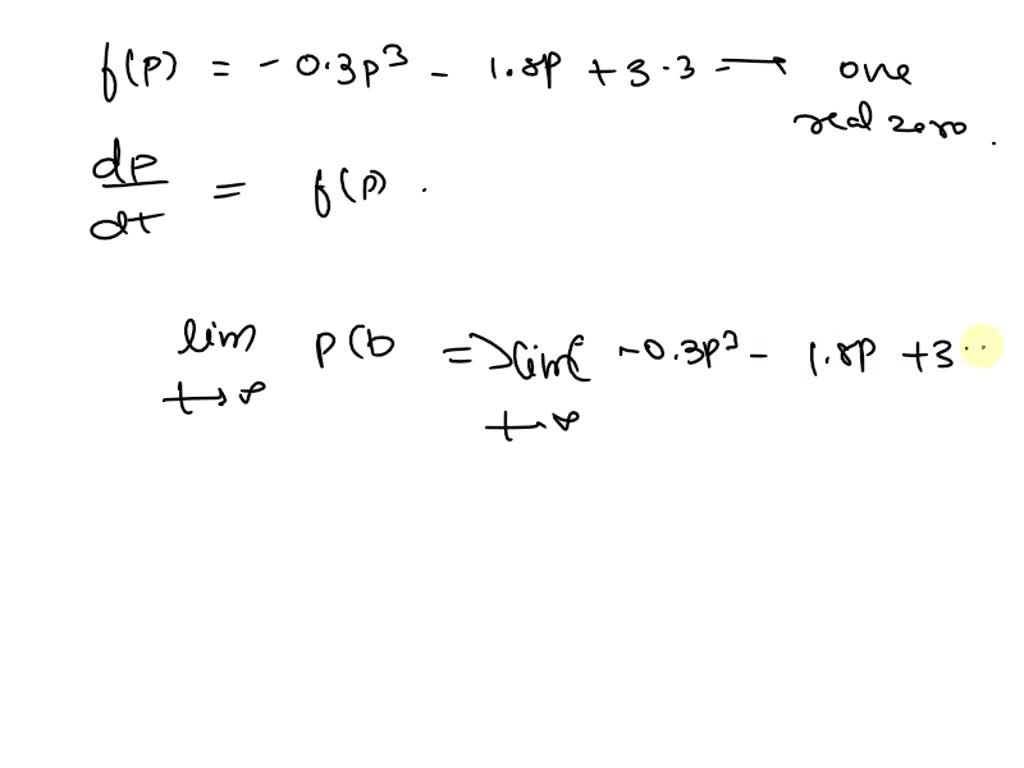 f(p) = - 0.3p³ - 1.8p + 3.3 → one real zero.
dp/dt = f(p).
lim t→∞ p(t) => lim t→∞ -0.3p³ - 1.8p + 3..